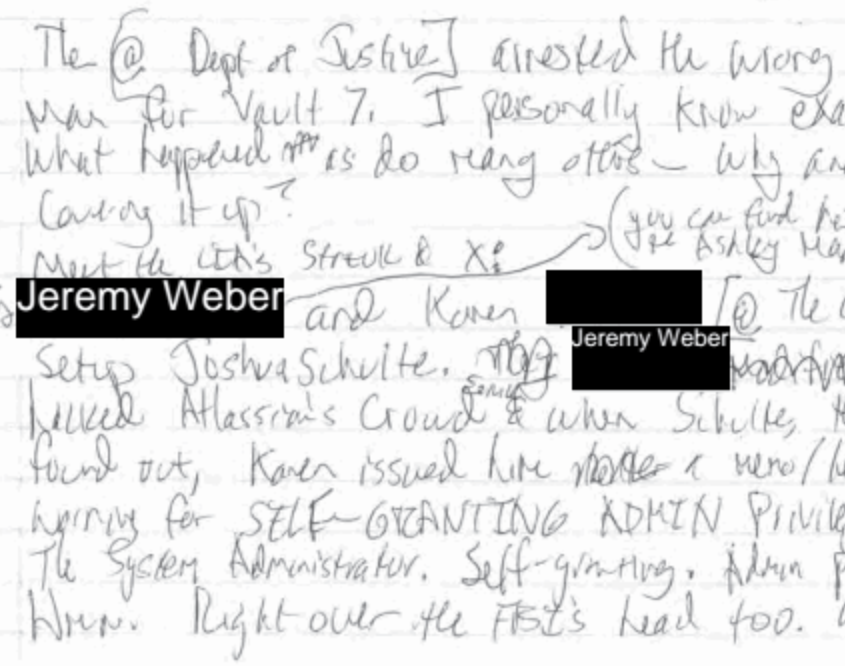 The [@ Dept of Justice] arrested the wrong
Man for Vault 7. I personally know exa
What happened as do many others – Why are
Covering it up?
(you can find he
Ashley Ma
Meet the CIA's Struik & X:
Jeremy Weber and Karen [@ The
Jeremy Weber
Setup Joshua Schulte.
hacked Atlassian's Crowd & when Schulte,
found out, Karen issued him a memo/
warning for SELF-GRANTING ADMIN Privile
The System Administrator. Self-granting. Admin p
Right over the FBI's head too.